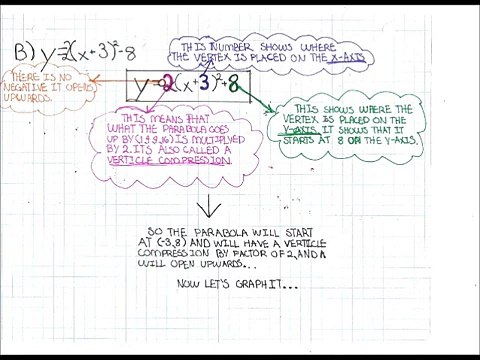 B) y=2(x+3)²-8
THIS NUMBER SHOWS WHERE
THE VERTEX IS PLACED ON THE X-AXIS
THERE IS NO
NEGATIVE IT OPENS
UPWARDS.
y=2(x+3)²+8
THIS MEANS THAT
WHAT THE PARABOLA GOES
UP BY (1,4,9,16) IS MULTIPLYED
BY 2. ITS ALSO CALLED A
VERTICLE COMPRESSION.
THIS SHOWS WHERE THE
VERTEX IS PLACED ON THE
Y-AXIS. IT SHOWS THAT IT
STARTS AT 8 ON THE Y-AXIS.
SO THE PARABOLA WILL START
AT (-3,8) AND WILL HAVE A VERTICLE
COMPRESSION BY FACTOR OF 2, AND A
WILL OPEN UPWARDS...
NOW LET'S GRAPH IT...